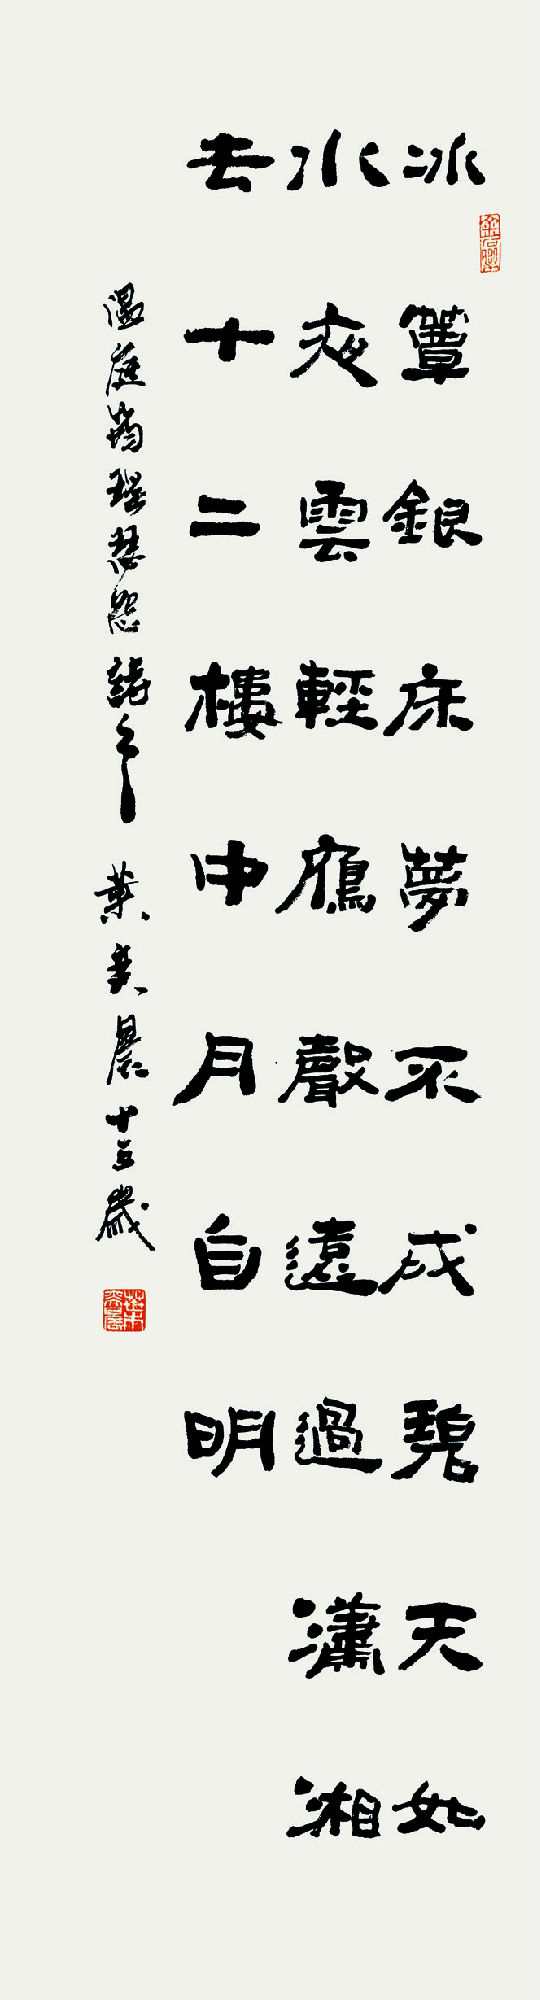 冰簟銀床夢不成碧天如
水夜雲輕鴈聲遠過瀟湘
去十二樓中月自明
温庭筠瑶瑟怨詩 葉奕晨十歲